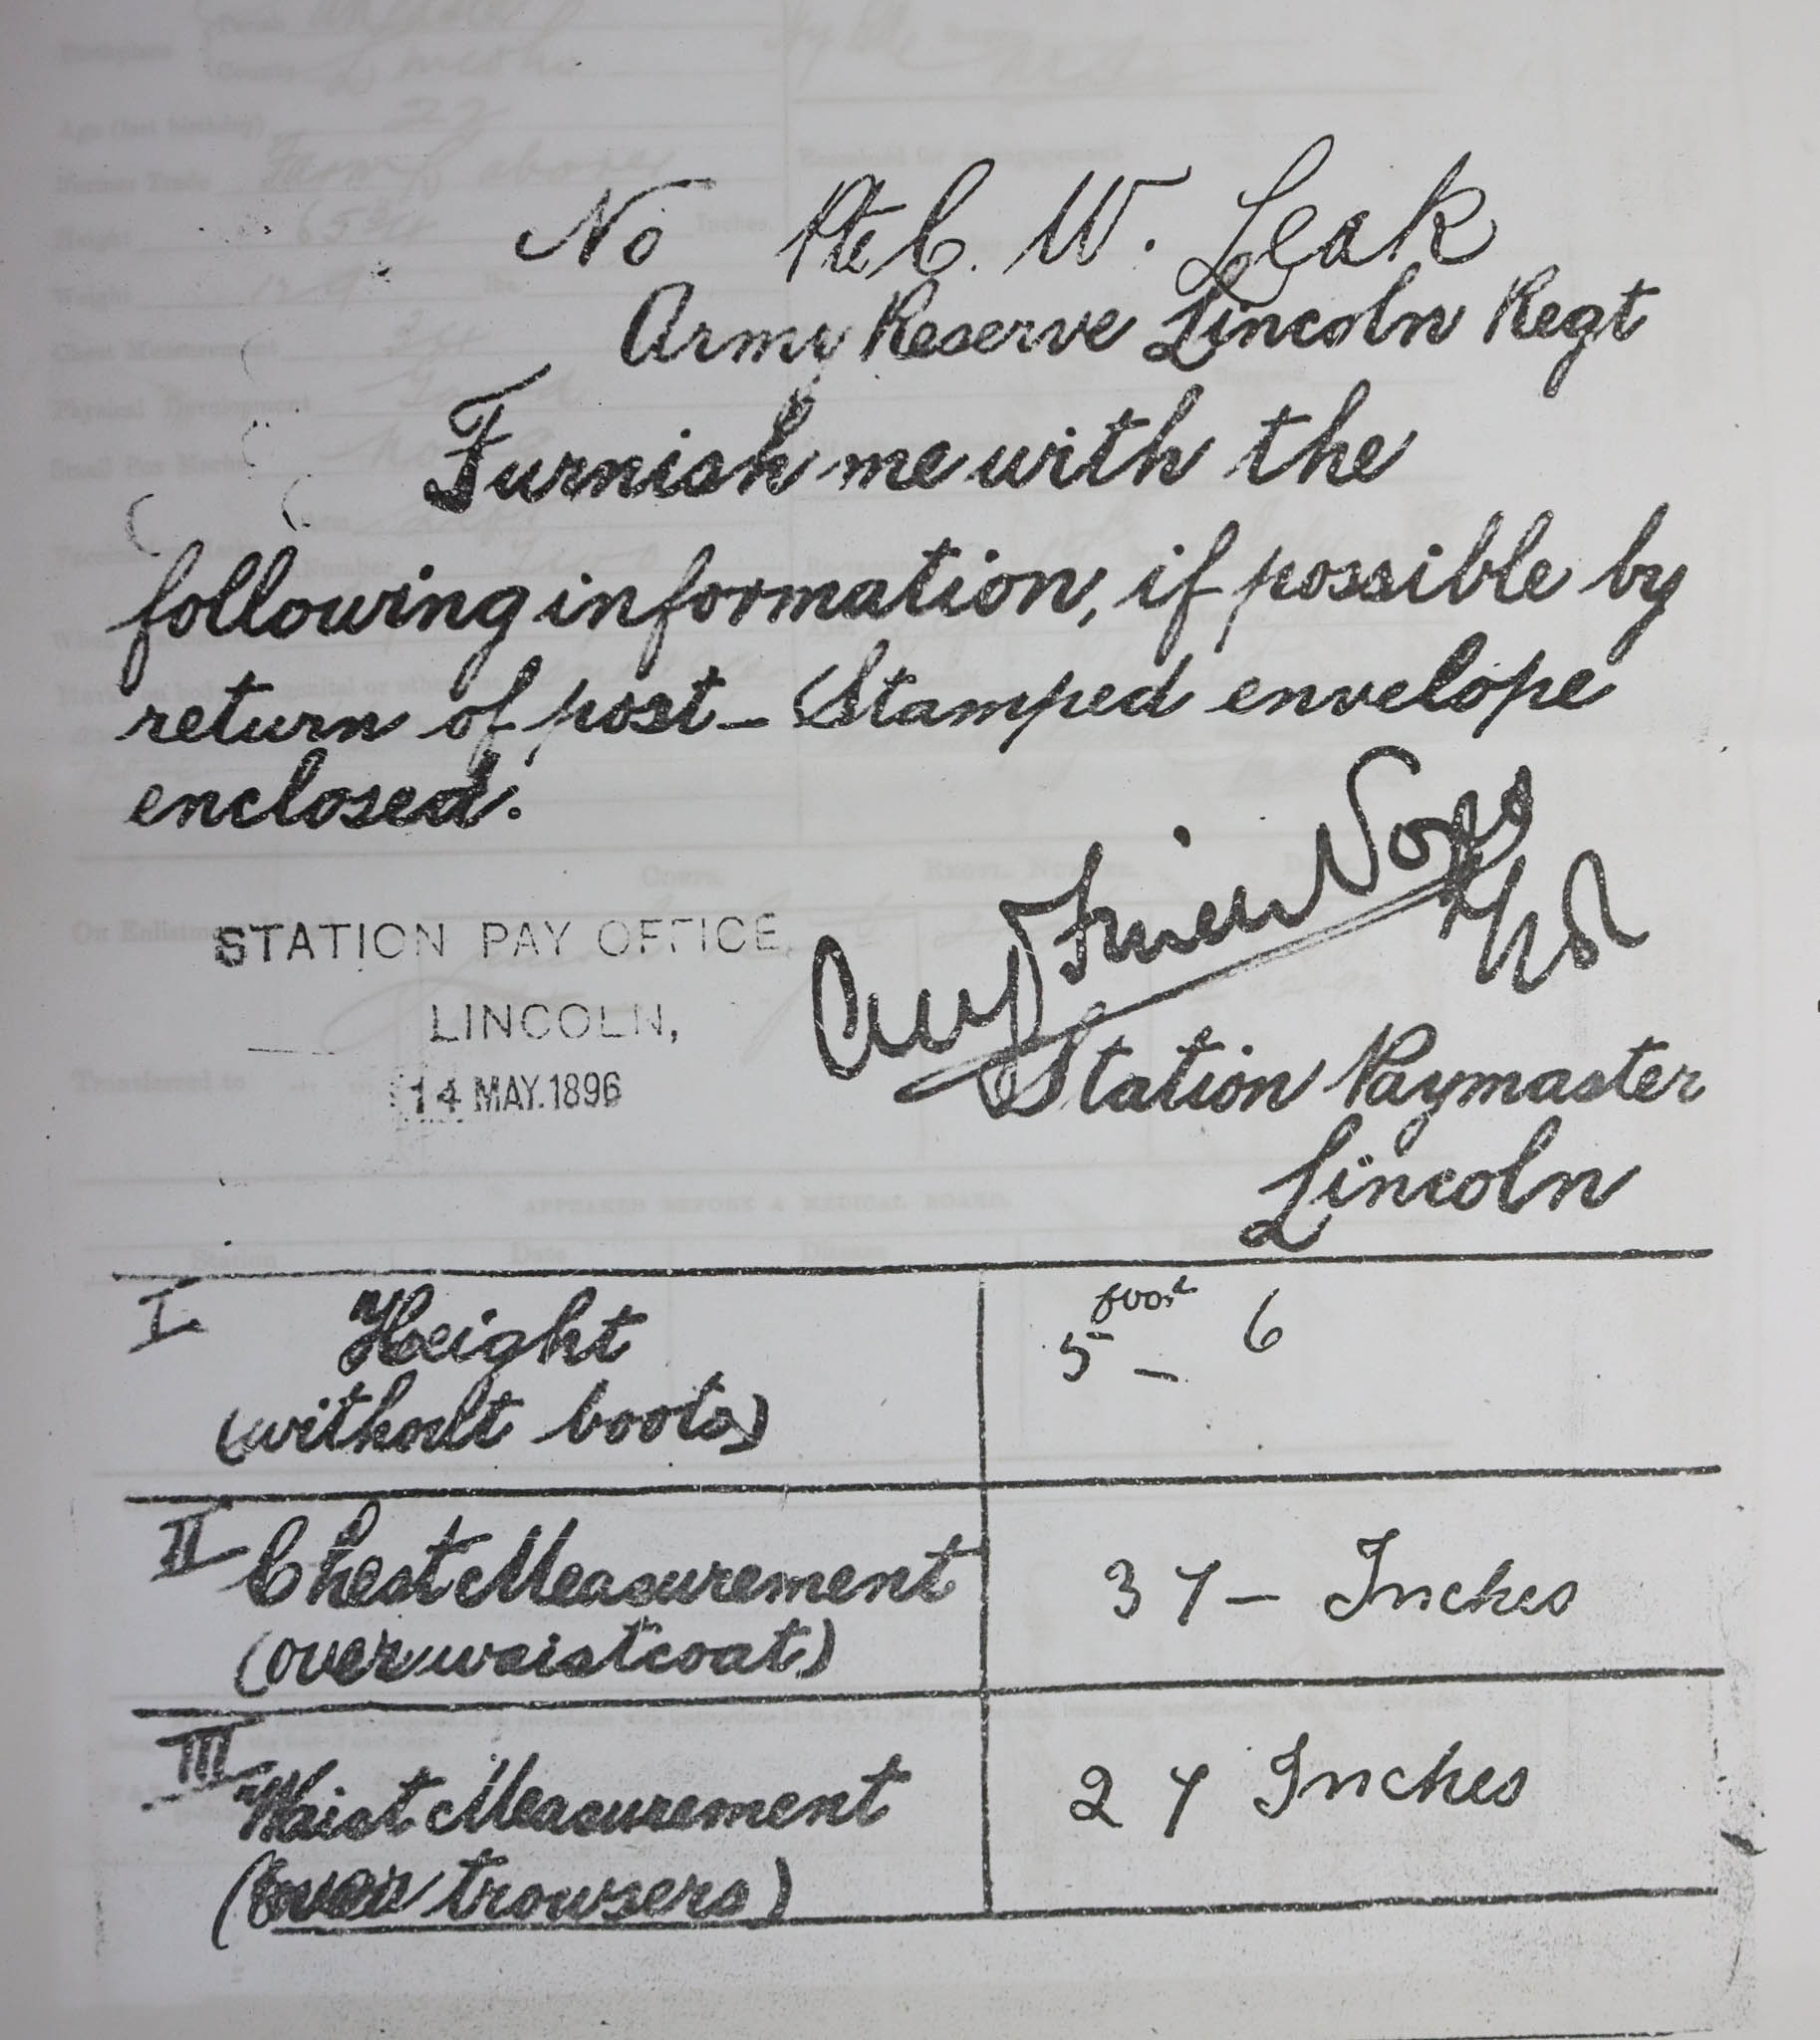 No Pte C. W. Leak
Army Reserve Lincoln Regt
Furnish me with the
following information, if possible by
return of post – Stamped envelope
enclosed.
STATION PAY OFFICE,
LINCOLN,
14 MAY. 1896
Station Paymaster
Lincoln
I Height
(without boots)
foot
5 – 6
II Chest Measurement
(over waistcoat)
37 – Inches
III Waist Measurement
(over trowsers)
27 Inches